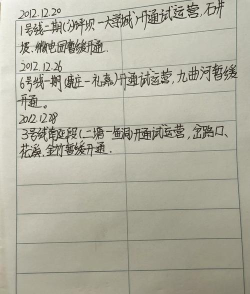 2012.12.20
1号线二期(沙坪坝—大学城)开通试运营,石井
坡、微电园暂缓开通.
2012.12.26
6号线一期(—礼嘉)开通试运营,九曲河暂缓
开通。
2012.12.28
3号线南延段(二塘—鱼洞)开通试运营,岔路口、
花溪、金竹暂缓开通.